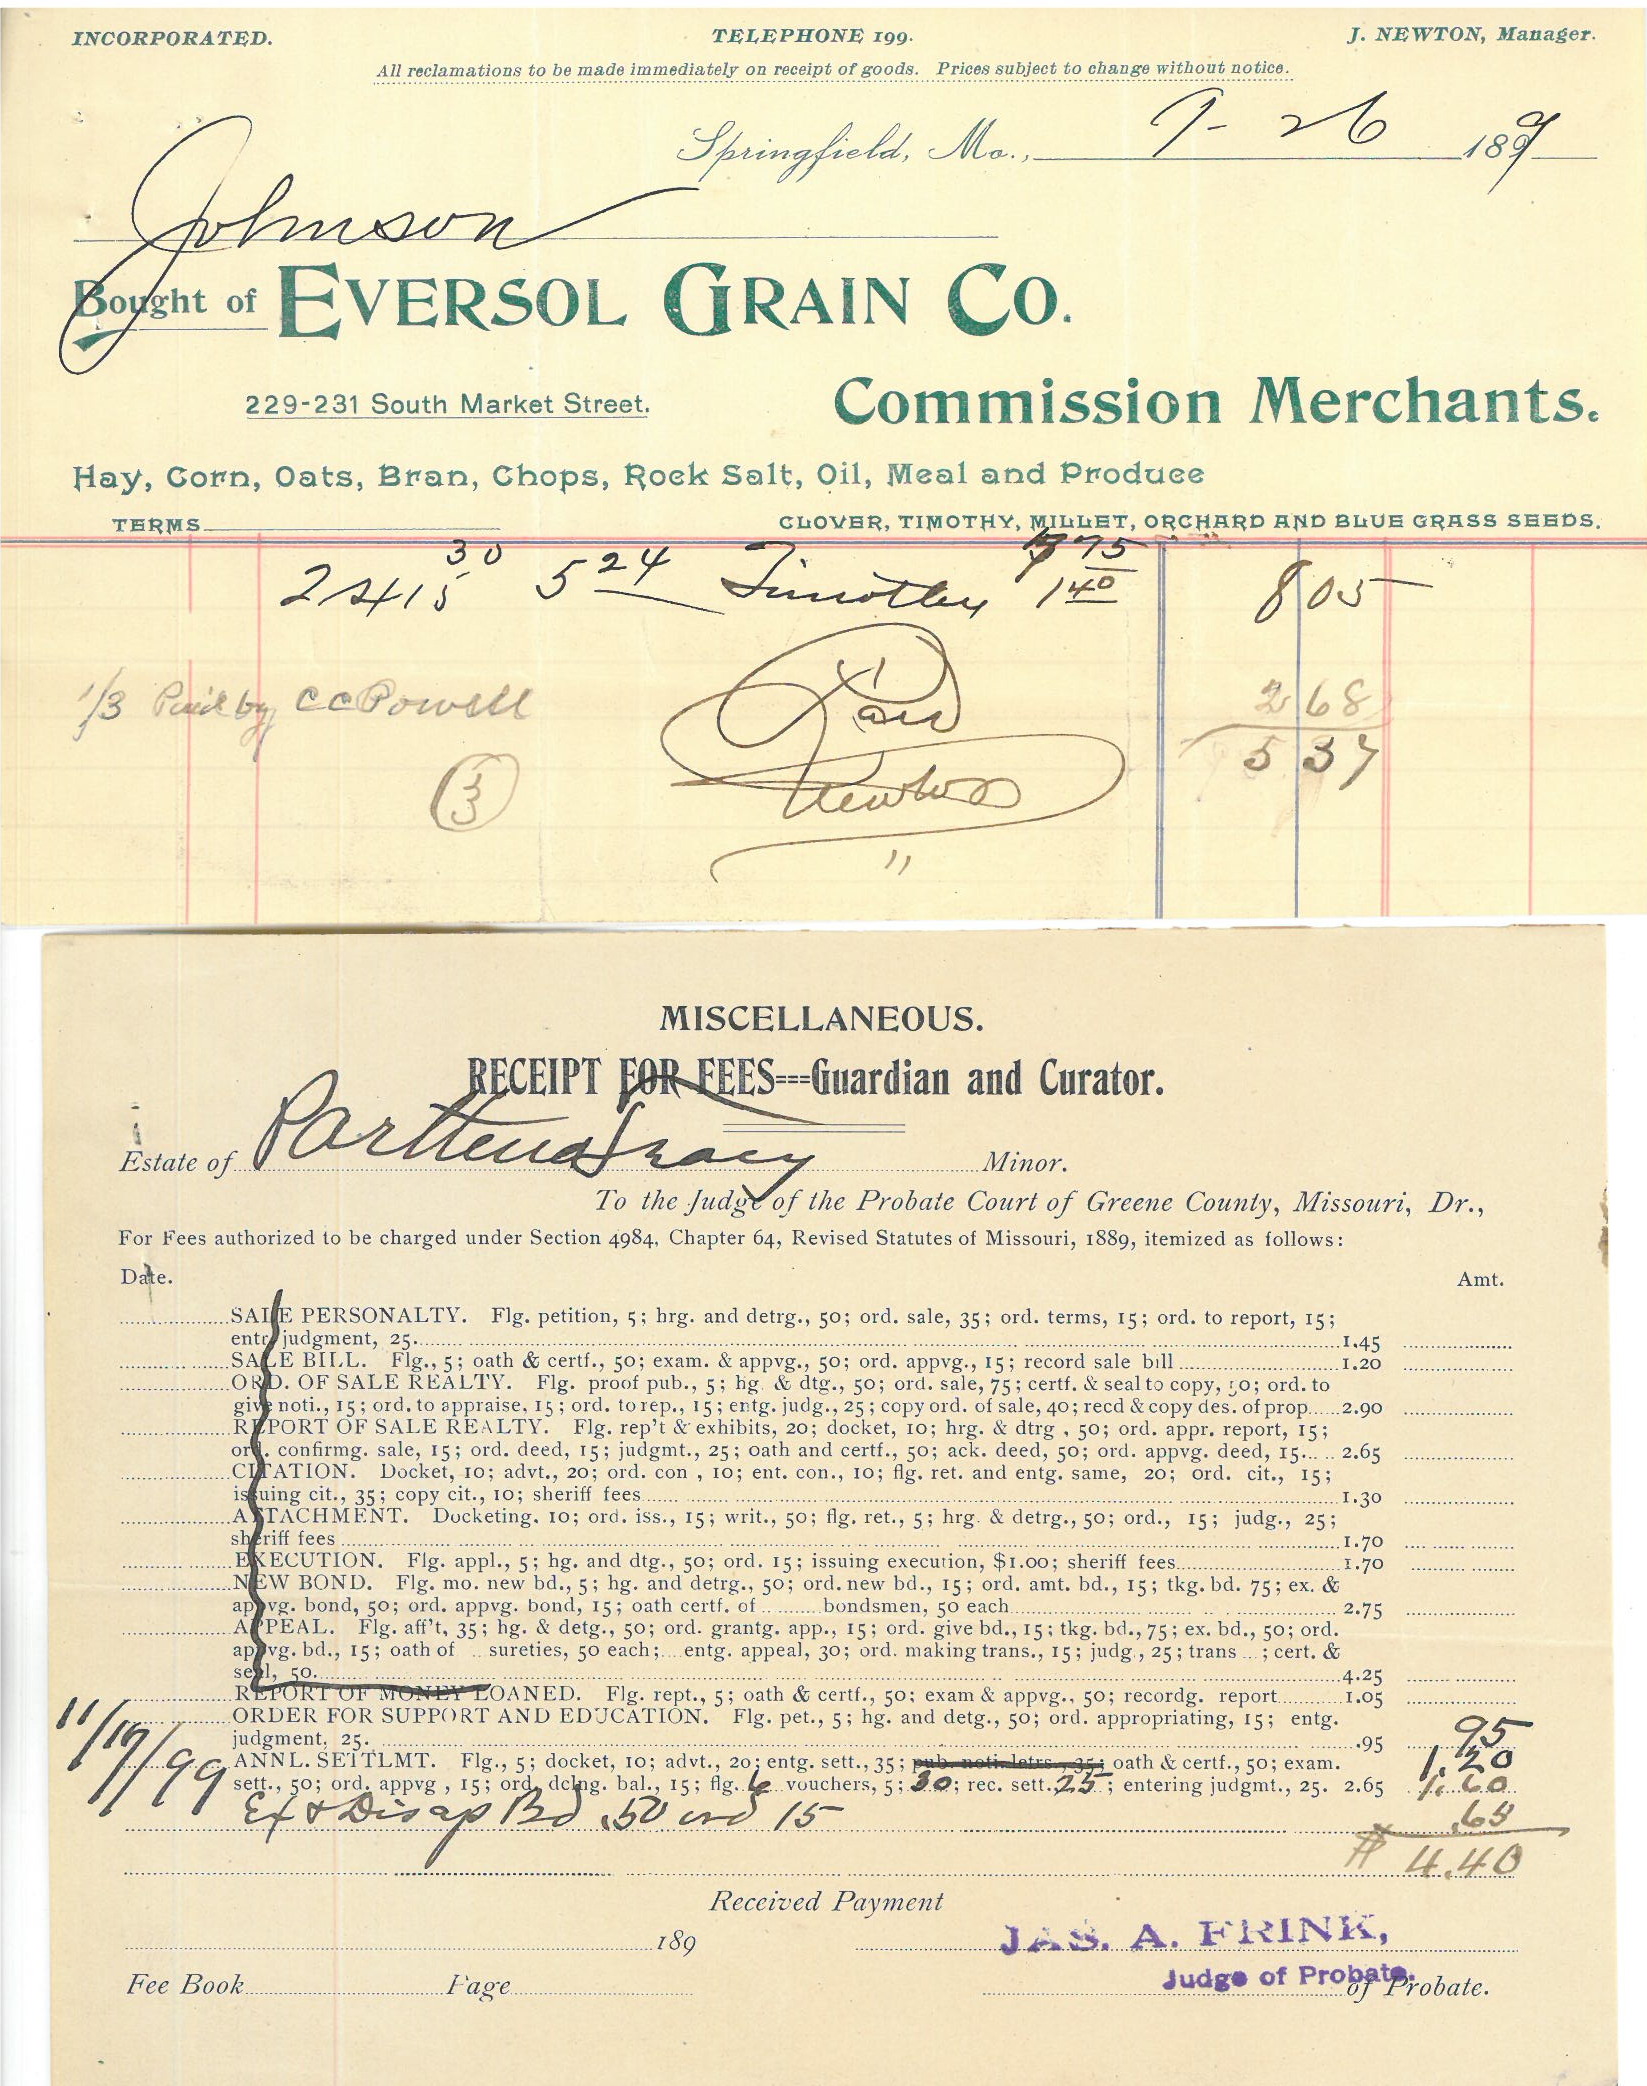 INCORPORATED. TELEPHONE 199. J. NEWTON, Manager.
All reclamations to be made immediately on receipt of goods. Prices subject to change without notice.
Springfield, Mo., 9-26 1899
Johnson
Bought of EVERSOL GRAIN CO.
229-231 South Market Street. Commission Merchants.
Hay, Corn, Oats, Bran, Chops, Rock Salt, Oil, Meal and Produce
TERMS CLOVER, TIMOTHY, MILLET, ORCHARD AND BLUE GRASS SEEDS.
30 75
5 24 Timothy 1 40 8 05
1/3 Paid by C C Powell 2 68
Paid 5 37
Newton
3
MISCELLANEOUS.
RECEIPT FOR FEES---Guardian and Curator.
Estate of Minor.
To the Judge of the Probate Court of Greene County, Missouri, Dr.,
For Fees authorized to be charged under Section 4984, Chapter 64, Revised Statutes of Missouri, 1889, itemized as follows:
Date. Amt.
SALE PERSONALTY. Flg. petition, 5; hrg. and detrg., 50; ord. sale, 35; ord. terms, 15; ord. to report, 15;
entr judgment, 25. 1.45
SALE BILL. Flg., 5; oath & certf., 50; exam. & appvg., 50; ord. appvg., 15; record sale bill 1.20
ORD. OF SALE REALTY. Flg. proof pub., 5; hg. & dtg., 50; ord. sale, 75; certf. & seal to copy, 50; ord. to
give noti., 15; ord. to appraise, 15; ord. to rep., 15; entg. judg., 25; copy ord. of sale, 40; recd & copy des. of prop. 2.90
REPORT OF SALE REALTY. Flg. rep't & exhibits, 20; docket, 10; hrg. & dtrg., 50; ord. appr. report, 15;
ord. confirmg. sale, 15; ord. deed, 15; judgmt., 25; oath and certf., 50; ack. deed, 50; ord. appvg. deed, 15. 2.65
CITATION. Docket, 10; advt., 20; ord. con., 10; ent. con., 10; flg. ret. and entg. same, 20; ord. cit., 15;
issuing cit., 35; copy cit., 10; sheriff fees 1.30
ATTACHMENT. Docketing. 10; ord. iss., 15; writ., 50; flg. ret., 5; hrg. & detrg., 50; ord., 15; judg., 25;
sheriff fees 1.70
EXECUTION. Flg. appl., 5; hg. and dtg., 50; ord. 15; issuing execution, $1.00; sheriff fees 1.70
NEW BOND. Flg. mo. new bd., 5; hg. and detrg., 50; ord. new bd., 15; ord. amt. bd., 15; tkg. bd. 75; ex. &
appvg. bond, 50; ord. appvg. bond, 15; oath certf. of bondsmen, 50 each 2.75
APPEAL. Flg. aff't, 35; hg. & detg., 50; ord. grantg. app., 15; ord. give bd., 15; tkg. bd., 75; ex. bd., 50; ord.
appvg. bd., 15; oath of sureties, 50 each; entg. appeal, 30; ord. making trans., 15; judg., 25; trans ; cert. &
seal, 50. 4.25
REPORT OF MONEY LOANED. Flg. rept., 5; oath & certf., 50; exam & appvg., 50; recordg. report 1.05
ORDER FOR SUPPORT AND EDUCATION. Flg. pet., 5; hg. and detg., 50; ord. appropriating, 15; entg.
judgment, 25. .95 95
11/17/99 ANNL. SETTLMT. Flg., 5; docket, 10; advt., 20; entg. sett., 35; pub. noti. letrs., 35; oath & certf., 50; exam. 1.20
sett., 50; ord. appvg., 15; ord. dclng. bal., 15; flg. 6 vouchers, 5; 30; rec. sett. 25; entering judgmt., 25. 2.65 1.60
Ex & Disap Bd .50 ord 15 .65
$ 4.40
Received Payment
189 JAS. A. FRINK,
Judge of Probate.
Fee Book Page of Probate.